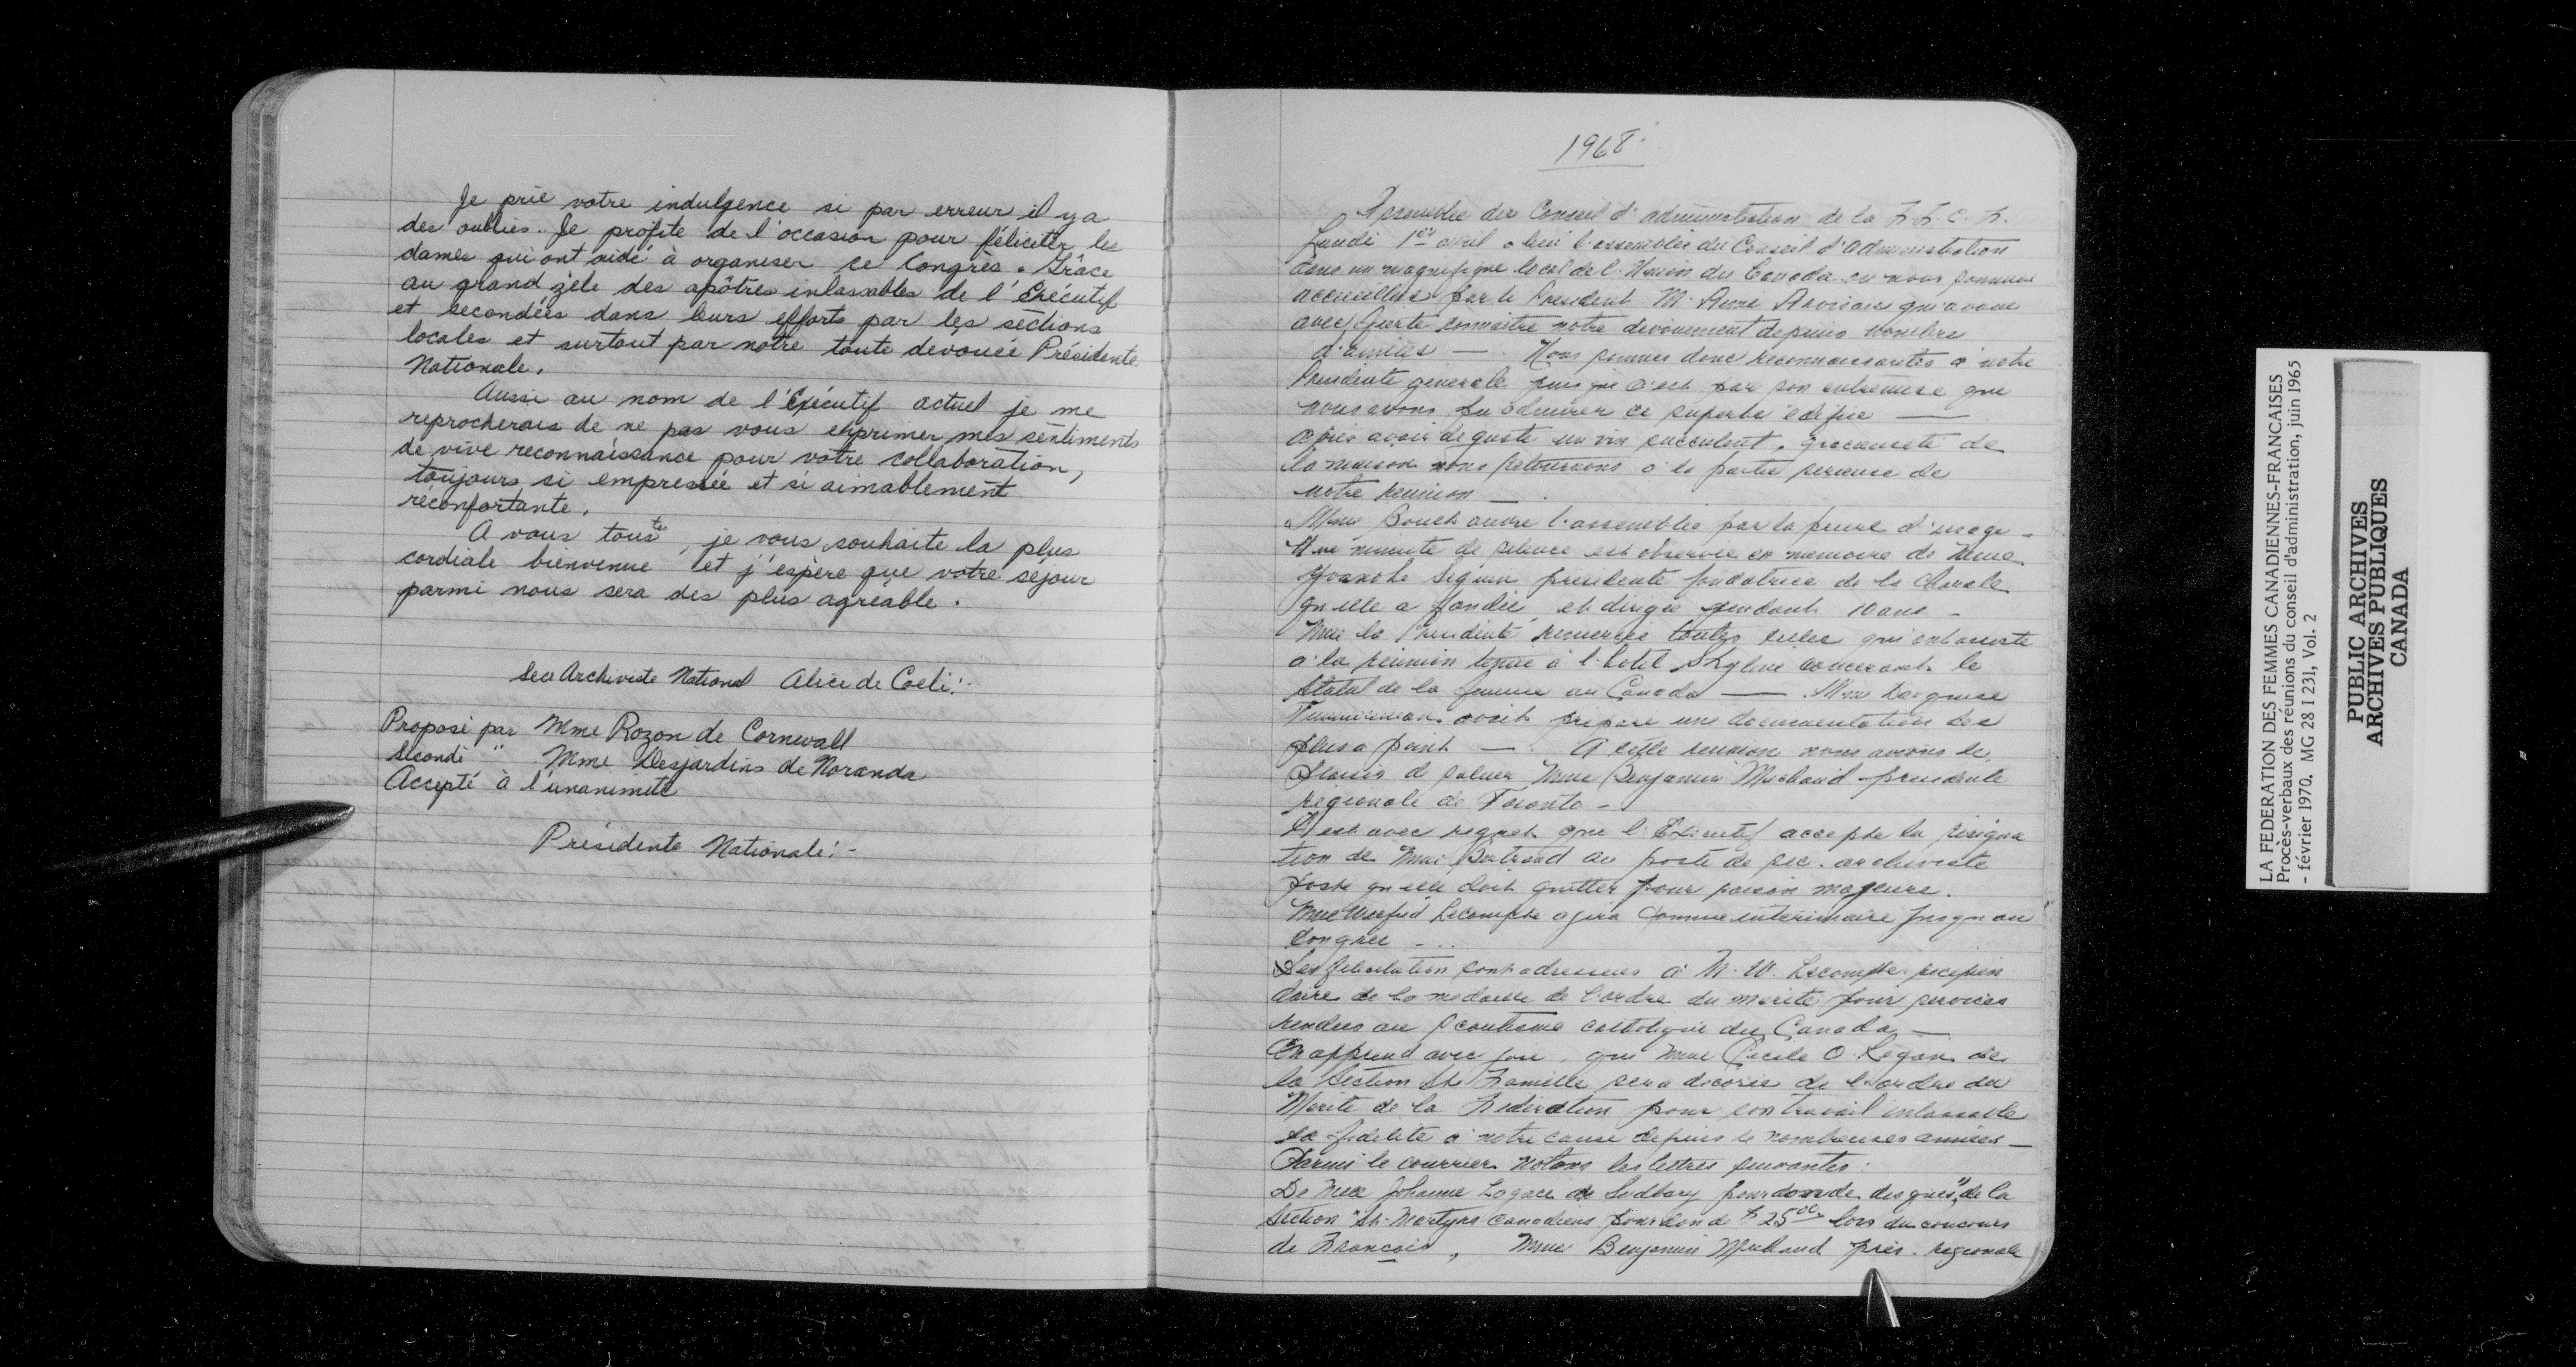 Je prie votre indulgence si par erreur il y a
des oubliés. Je profite de l'occasion pour féliciter les
dames qui ont aidé à organiser ce Congrès. Grâce
au grand zèle des apôtres inlassables de l'Exécutif
et secondées dans leurs efforts par les sections
locales et surtout par notre toute devouée Présidente
Nationale.
Aussi au nom de l'Exécutif actuel je me
reprocherais de ne pas vous exprimer mes sentiments
de vive reconnaissance pour votre collaboration,
toujours si empressée et si aimablement
réconfortante.
A vous toustes, je vous souhaite la plus
cordiale bienvenue et j'espère que votre séjour
parmi nous sera des plus agréable.
Sec Archiviste National Alice de Coeli:-
Proposé par Mme Rozon de Cornwall
Secondé " Mme Desjardins de Noranda
Accepté à l'unanimité
Présidente Nationale:-
1968
Assemblée du Conseil d'administration de la F.F.C.F.
Lundi 1er avril a lieu l'assemblée du Conseil d'administration
dans un magnifique local de l'Union du Canada où nous sommes
accueillies par le President M. Aimé Arvisais qui avoue
avec fierté connaitre notre dévouement depuis nombre
d'années — Nous sommes donc reconnaissantes à notre
Presidente générale puisque c'est par son entremise que
nous avons pu admirer ce superbe édifice —
Après avoir deguste un vin succulent, gracieuseté de
la maison nous retournons à la partie serieuse de
notre reunion —
Mme Bouch ouvre l'assemblée par la priere d'usage -
Une minute de silence est observée en memoire de Mme
Seguin presidente fondatrice de la Chorale
qu'elle a fondée et dirigée pendant 10 ans -
Mme la Presidente remercie toutes celles qui ont assisté
à la réunion tenue à l'hotel Skyline concernant le
Statut de la femme au Canada — Mme
avait préparé une documentation des
plus a point — A cette reunion nous avons le
plaisir de saluer Mme Benjamin Michaud presidente
régionale de Toronto -
C'est avec regret que l'Exécutif accepte la résigna
tion de Mme Bertrand au poste de sec. archiviste
poste qu'elle doit quitter pour raison majeure.
Mme Wilfrid Lecompte agira comme intérimaire jusqu'au
Congrès - ..
Des félicitation sont adressées à M. W. Lecompte récipien
daire de la médaille de l'ordre du mérite pour services
rendus au scoutisme catholique du Canada —
On apprend avec joie, que Mme Cécile O. Régan de
la Section Ste Famille sera décorée de l'ordre du
Mérite de la Fédération pour son travail inlassable
sa fidélité à notre cause depuis de nombreuses années —
Parmi le courrier notons les lettres suivantes:
De Mme Johanne Lagacé de Sudbury pour don de disques", de la
Section "Sts-Martyrs Canadiens pour don de $25.00 lors du concours
de Français, Mme Benjamin Michaud prés. régionale
LA FEDERATION DES FEMMES CANADIENNES-FRANCAISES
Procès-verbaux des réunions du conseil d'administration, juin 1965
- février 1970. MG 28 I 231, Vol. 2
PUBLIC ARCHIVES
ARCHIVES PUBLIQUES
CANADA